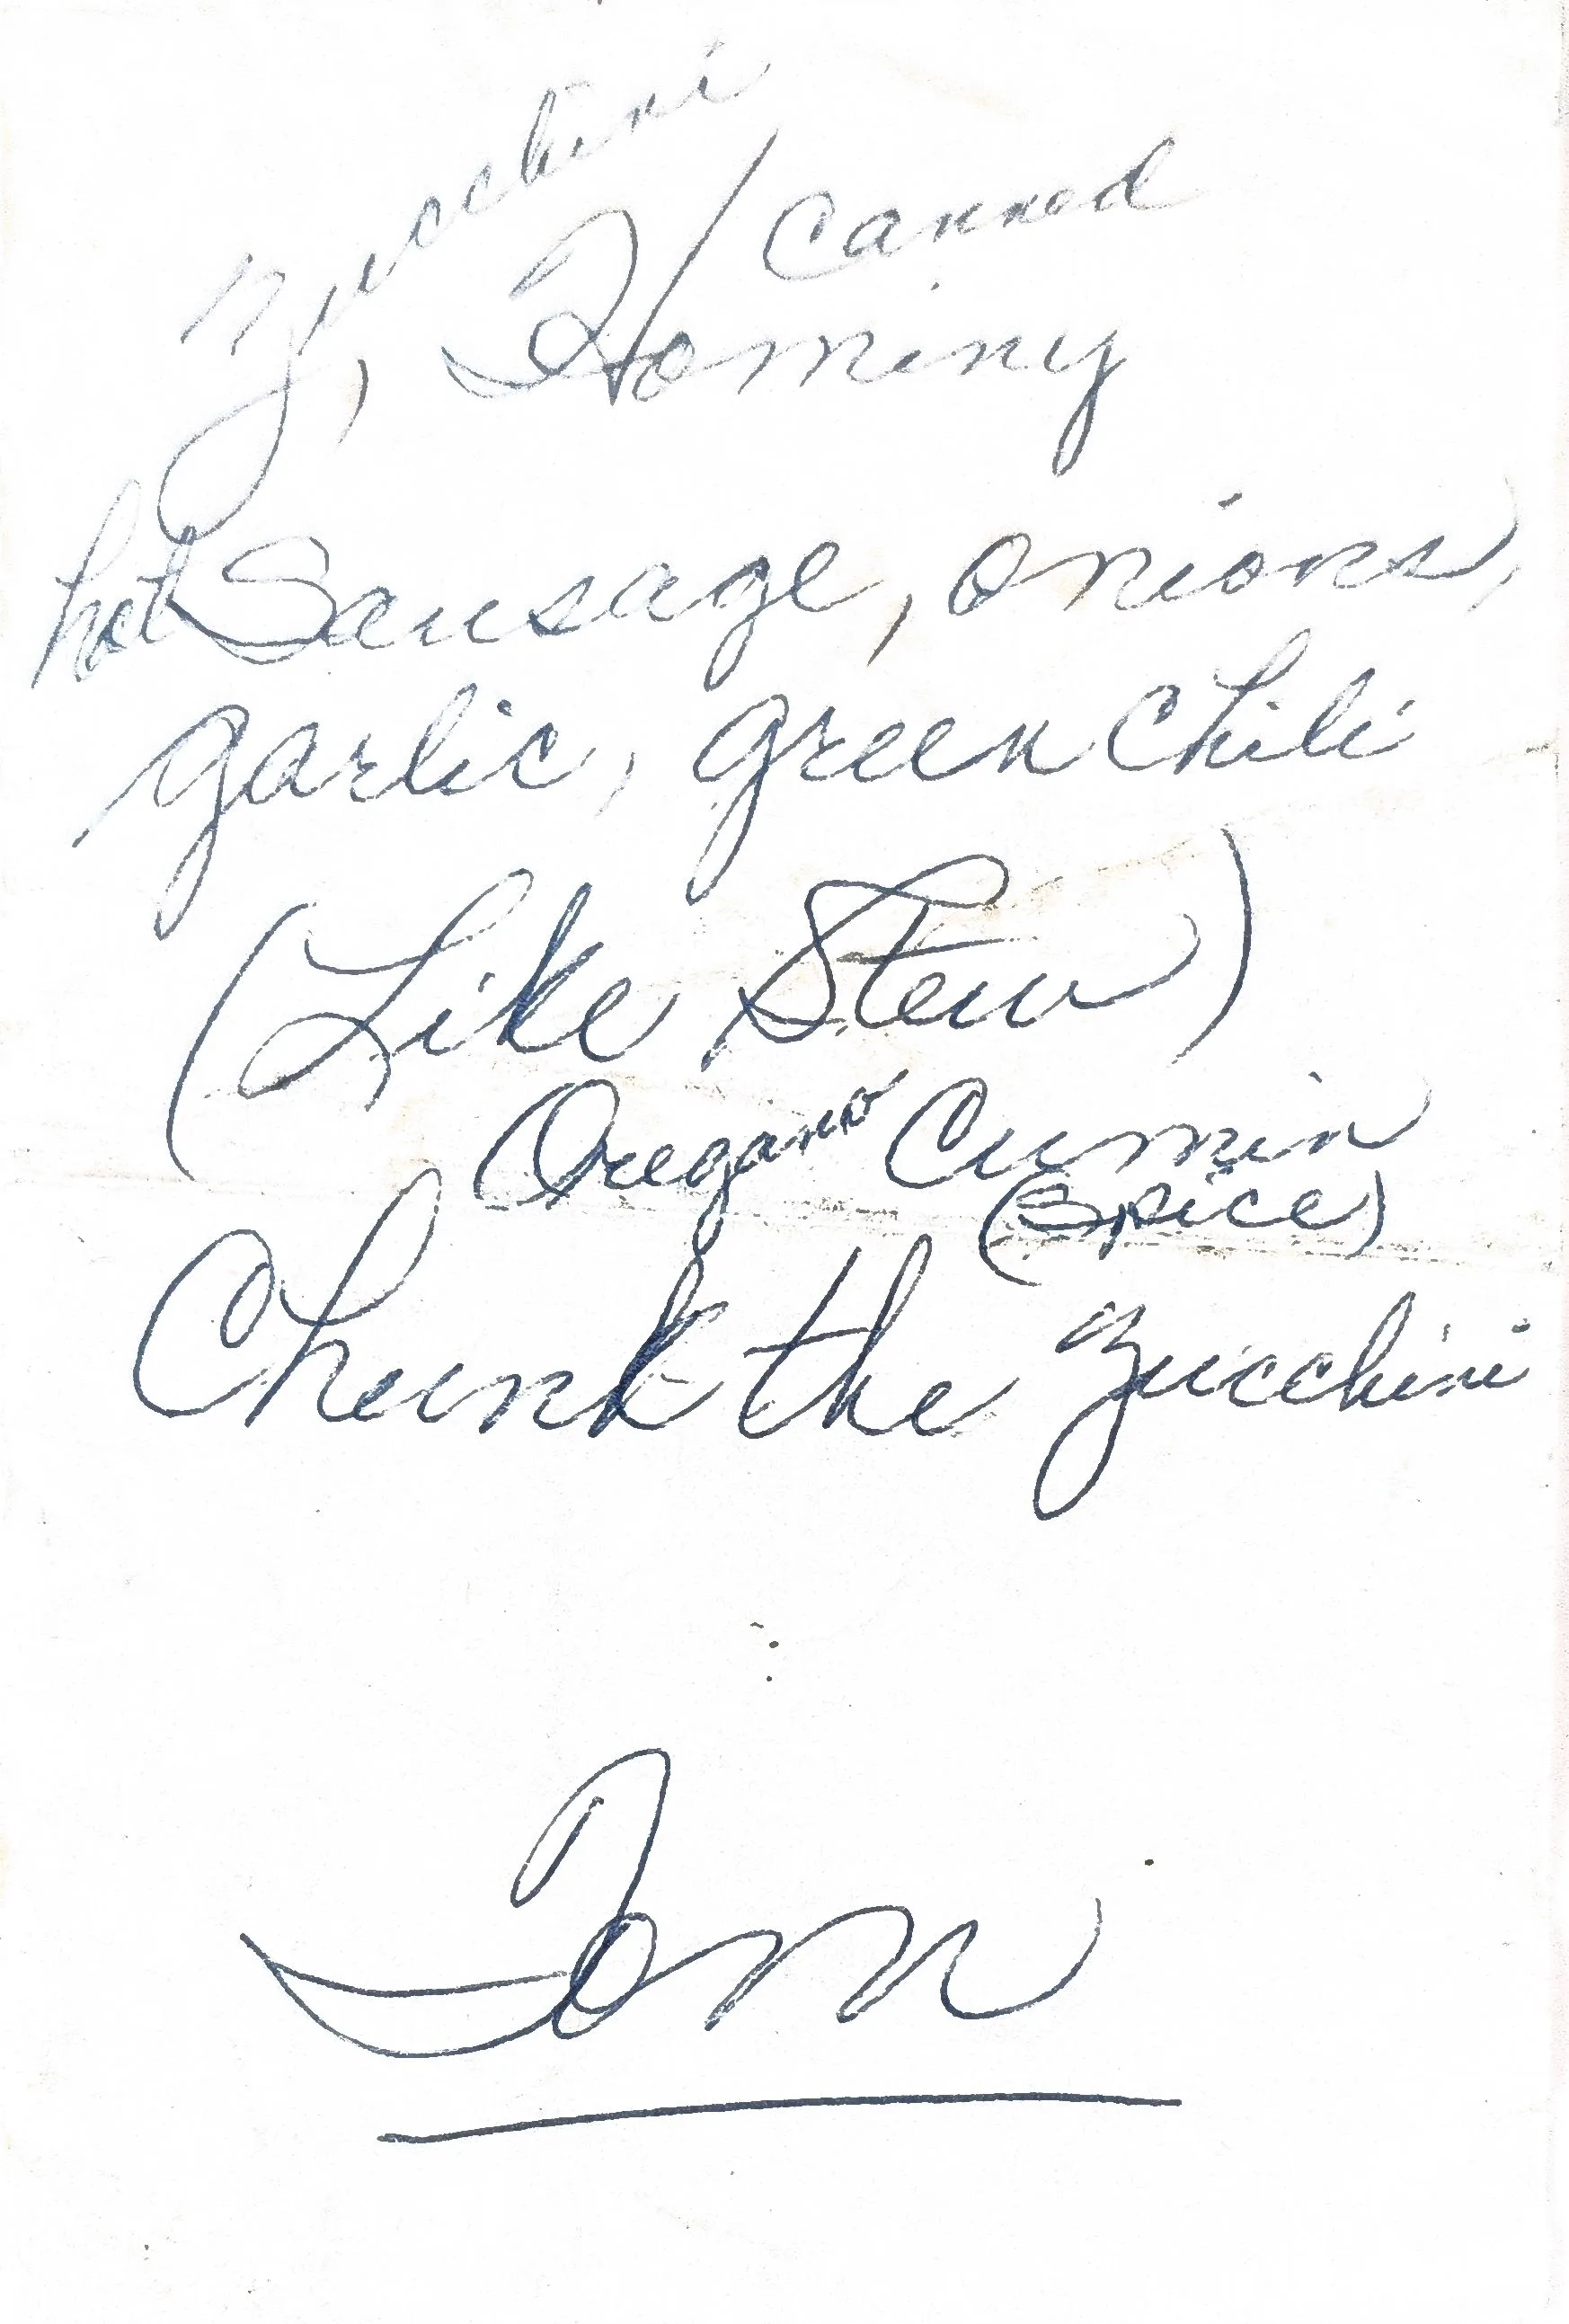 Zucchini
, Hominy canned
hot Sausage, onions,
garlic, green chili
(Like Stew)
Oregano Cumin
(spice)
Chunk the zucchini
Tom